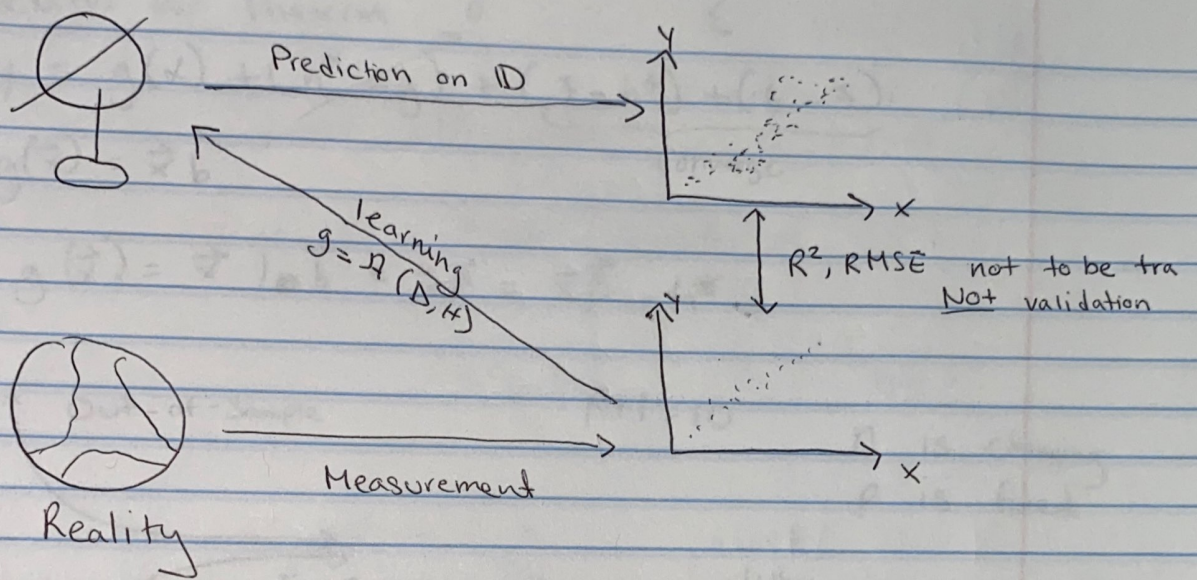 Prediction on 𝔻
Y
X
learning
g = A (Δ, H)
R², RMSE not to be tra
Not validation
Y
X
Measurement
Reality